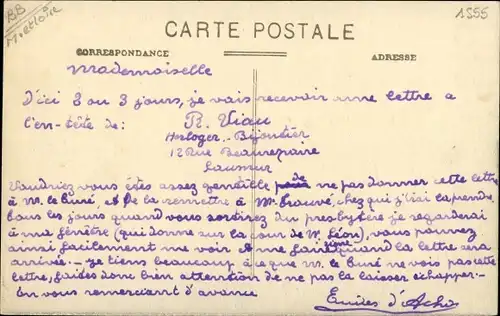 BB
1555
CARTE POSTALE
CORRESPONDANCE
ADRESSE
Mademoiselle
D'ici 2 ou 3 jours, je vais recevoir une lettre a
l'en-tête de:
R. Viau
Horloger-Bijoutier
12 Rue Beaurepaire
Saumur
Voudriez vous êtes assez gentille de ne pas donner cette lettre
à M. le Curé, et de la remettre à Mr Trouvé, chez qui j'irai la prendre
tous les jours quand vous sortirez du presbytère je regarderai
à ma fenêtre (qui donne sur la cour de M. Léon), vous pouvez
ainsi facilement me voir et me faire signe quand la lettre sera
arrivée. - je tiens beaucoup à ce que M. le Curé ne vois pas cette
lettre, faites donc bien attention de ne pas la laisser échapper -
En vous remerciant d'avance